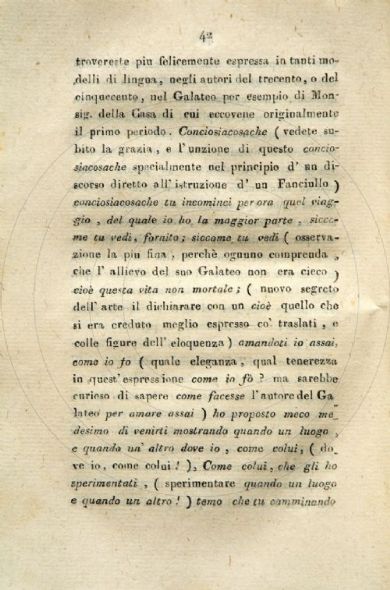 42
trovereste piu felicemente espressa in tanti mo-
delli di lingua, negli autori del trecento, o del
cinquecento, nel Galateo per esempio di Mon-
sig. della Casa di cui eccovene originalmente
il primo periodo. Conciosiacosache ( vedete su-
bito la grazia, e l'unzione di questo concio-
siacosache specialmente nel principio d' un di-
scorso diretto all'istruzione d' un Fanciullo )
conciosiacosache tu incominci per ora quel viag-
gio, del quale io ho la maggior parte, sicco-
me tu vedi, fornito; siccome tu vedi ( osserva-
zione la più fina, perchè ognuno comprenda,
che l' allievo del suo Galateo non era cieco )
cioè questa vita non mortale; ( nuovo segreto
dell' arte il dichiarare con un cioè quello che
si era creduto meglio espresso co' traslati, e
colle figure dell' eloquenza ) amandoti io assai,
come io fo ( quale eleganza, qual tenerezza
in quest' espressione come io fò? ma sarebbe
curioso di sapere come facesse l'autore del Ga
lateo per amare assai ) ho proposto meco me_
desimo di venirti mostrando quando un luogo,
e quando un' altro dove io, come colui, ( do_
ve io, come colui! ), Come colui, che gli ho
sperimentati, ( sperimentare quando un luogo
e quando un altro! ) temo che tu camminando